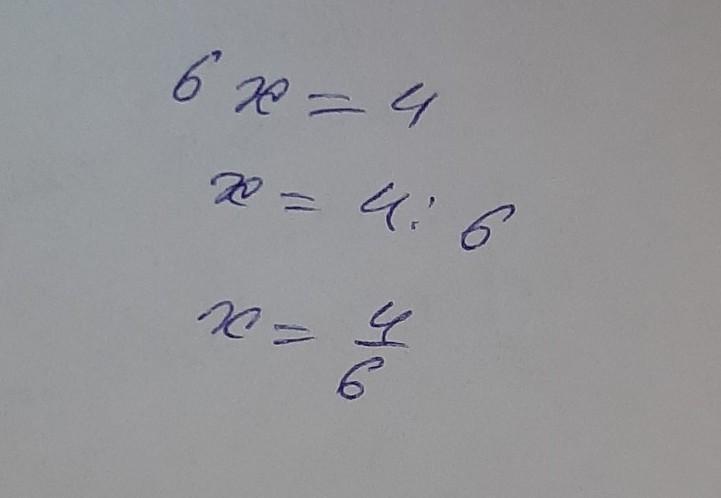 6x = 4
x = 4 : 6
x = 4/6